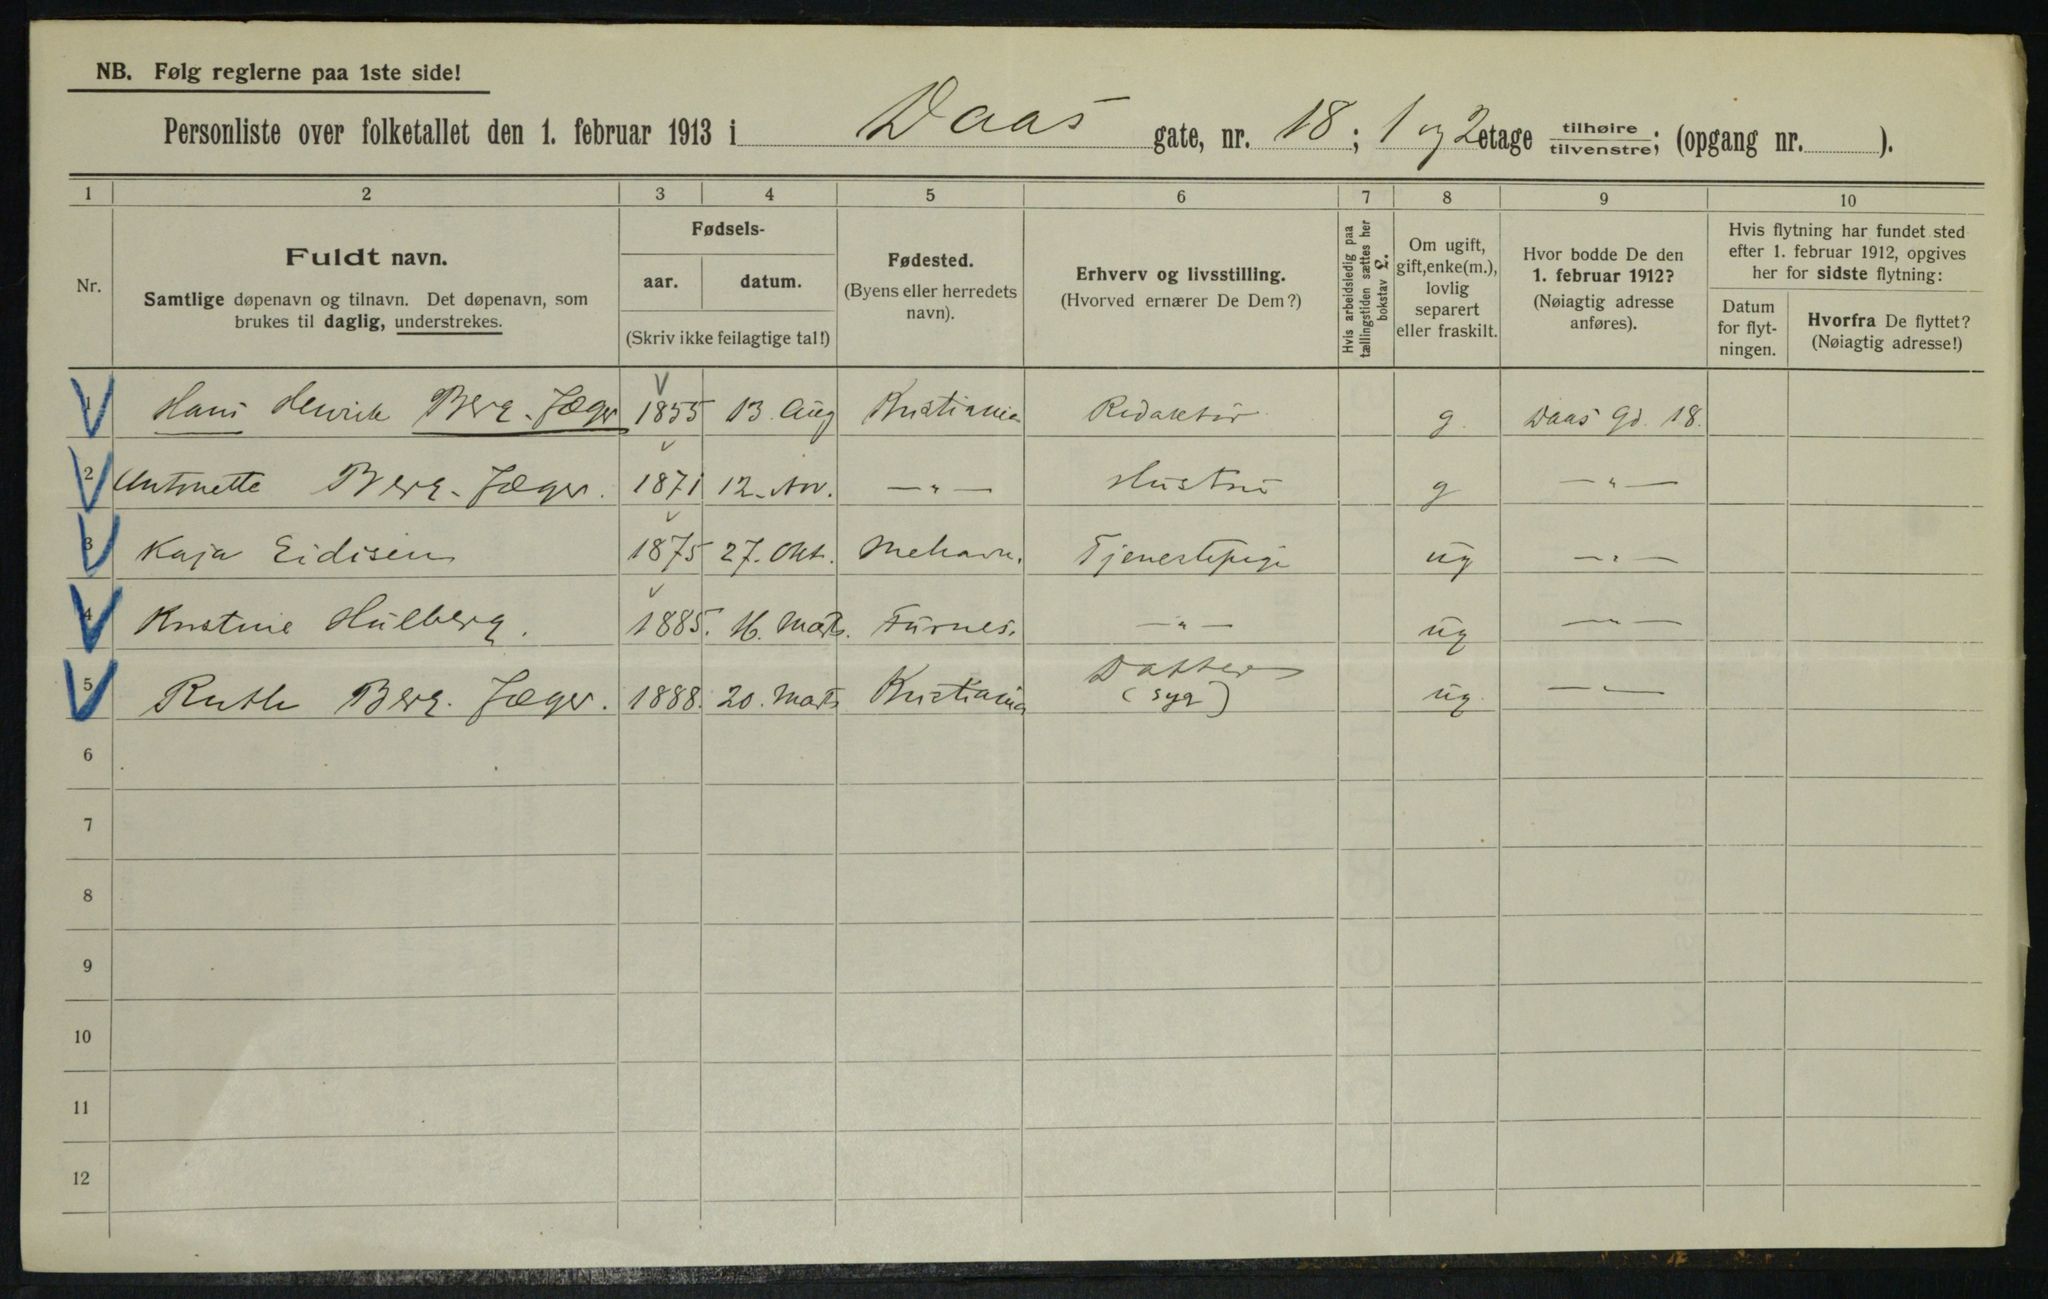 NB. Følg reglerne paa 1ste side!
Personliste over folketallet den 1. februar 1913 i Daas gate, nr. 18; 1 og 2 etage tilhøire tilvenstre; (opgang nr. ).
1 2 3 4 5 6 7 8 9 10
Nr.
Fuldt navn.
Samtlige døpenavn og tilnavn. Det døpenavn, som
brukes til daglig, understrekes.
Fødsels-
aar. datum.
(Skriv ikke feilagtige tal!)
Fødested.
(Byens eller herredets
navn).
Erhverv og livsstilling.
(Hvorved ernærer De Dem?)
Hvis arbeidsledig paa
tællingstiden sættes her
bokstav L.
Om ugift,
gift, enke(m.),
lovlig
separert
eller fraskilt.
Hvor bodde De den
1. februar 1912?
(Nøiagtig adresse
anføres).
Hvis flytning har fundet sted
efter 1. februar 1912, opgives
her for sidste flytning:
Datum
for flyt-
ningen.
Hvorfra De flyttet?
(Nøiagtig adresse!)
1 Hans Henrik Berg-Jæger 1855 13. Aug Kristiania Redaktør g. Daas Gd. 18.
2 Antonette Berg-Jæger. 1871 12. Nov. —„— Hustru g —„—
3 Kaja Eidisen 1875 27. Okt. Mehavn. Tjenestepige ug —„—
4 Kristine Hulberg. 1885. 16. Mats. Furnes. —„— ug —„—
5 Ruth Berg-Jæger. 1888. 20. Mats Kristiania Datter (syg) ug. —„—
6
7
8
9
10
11
12